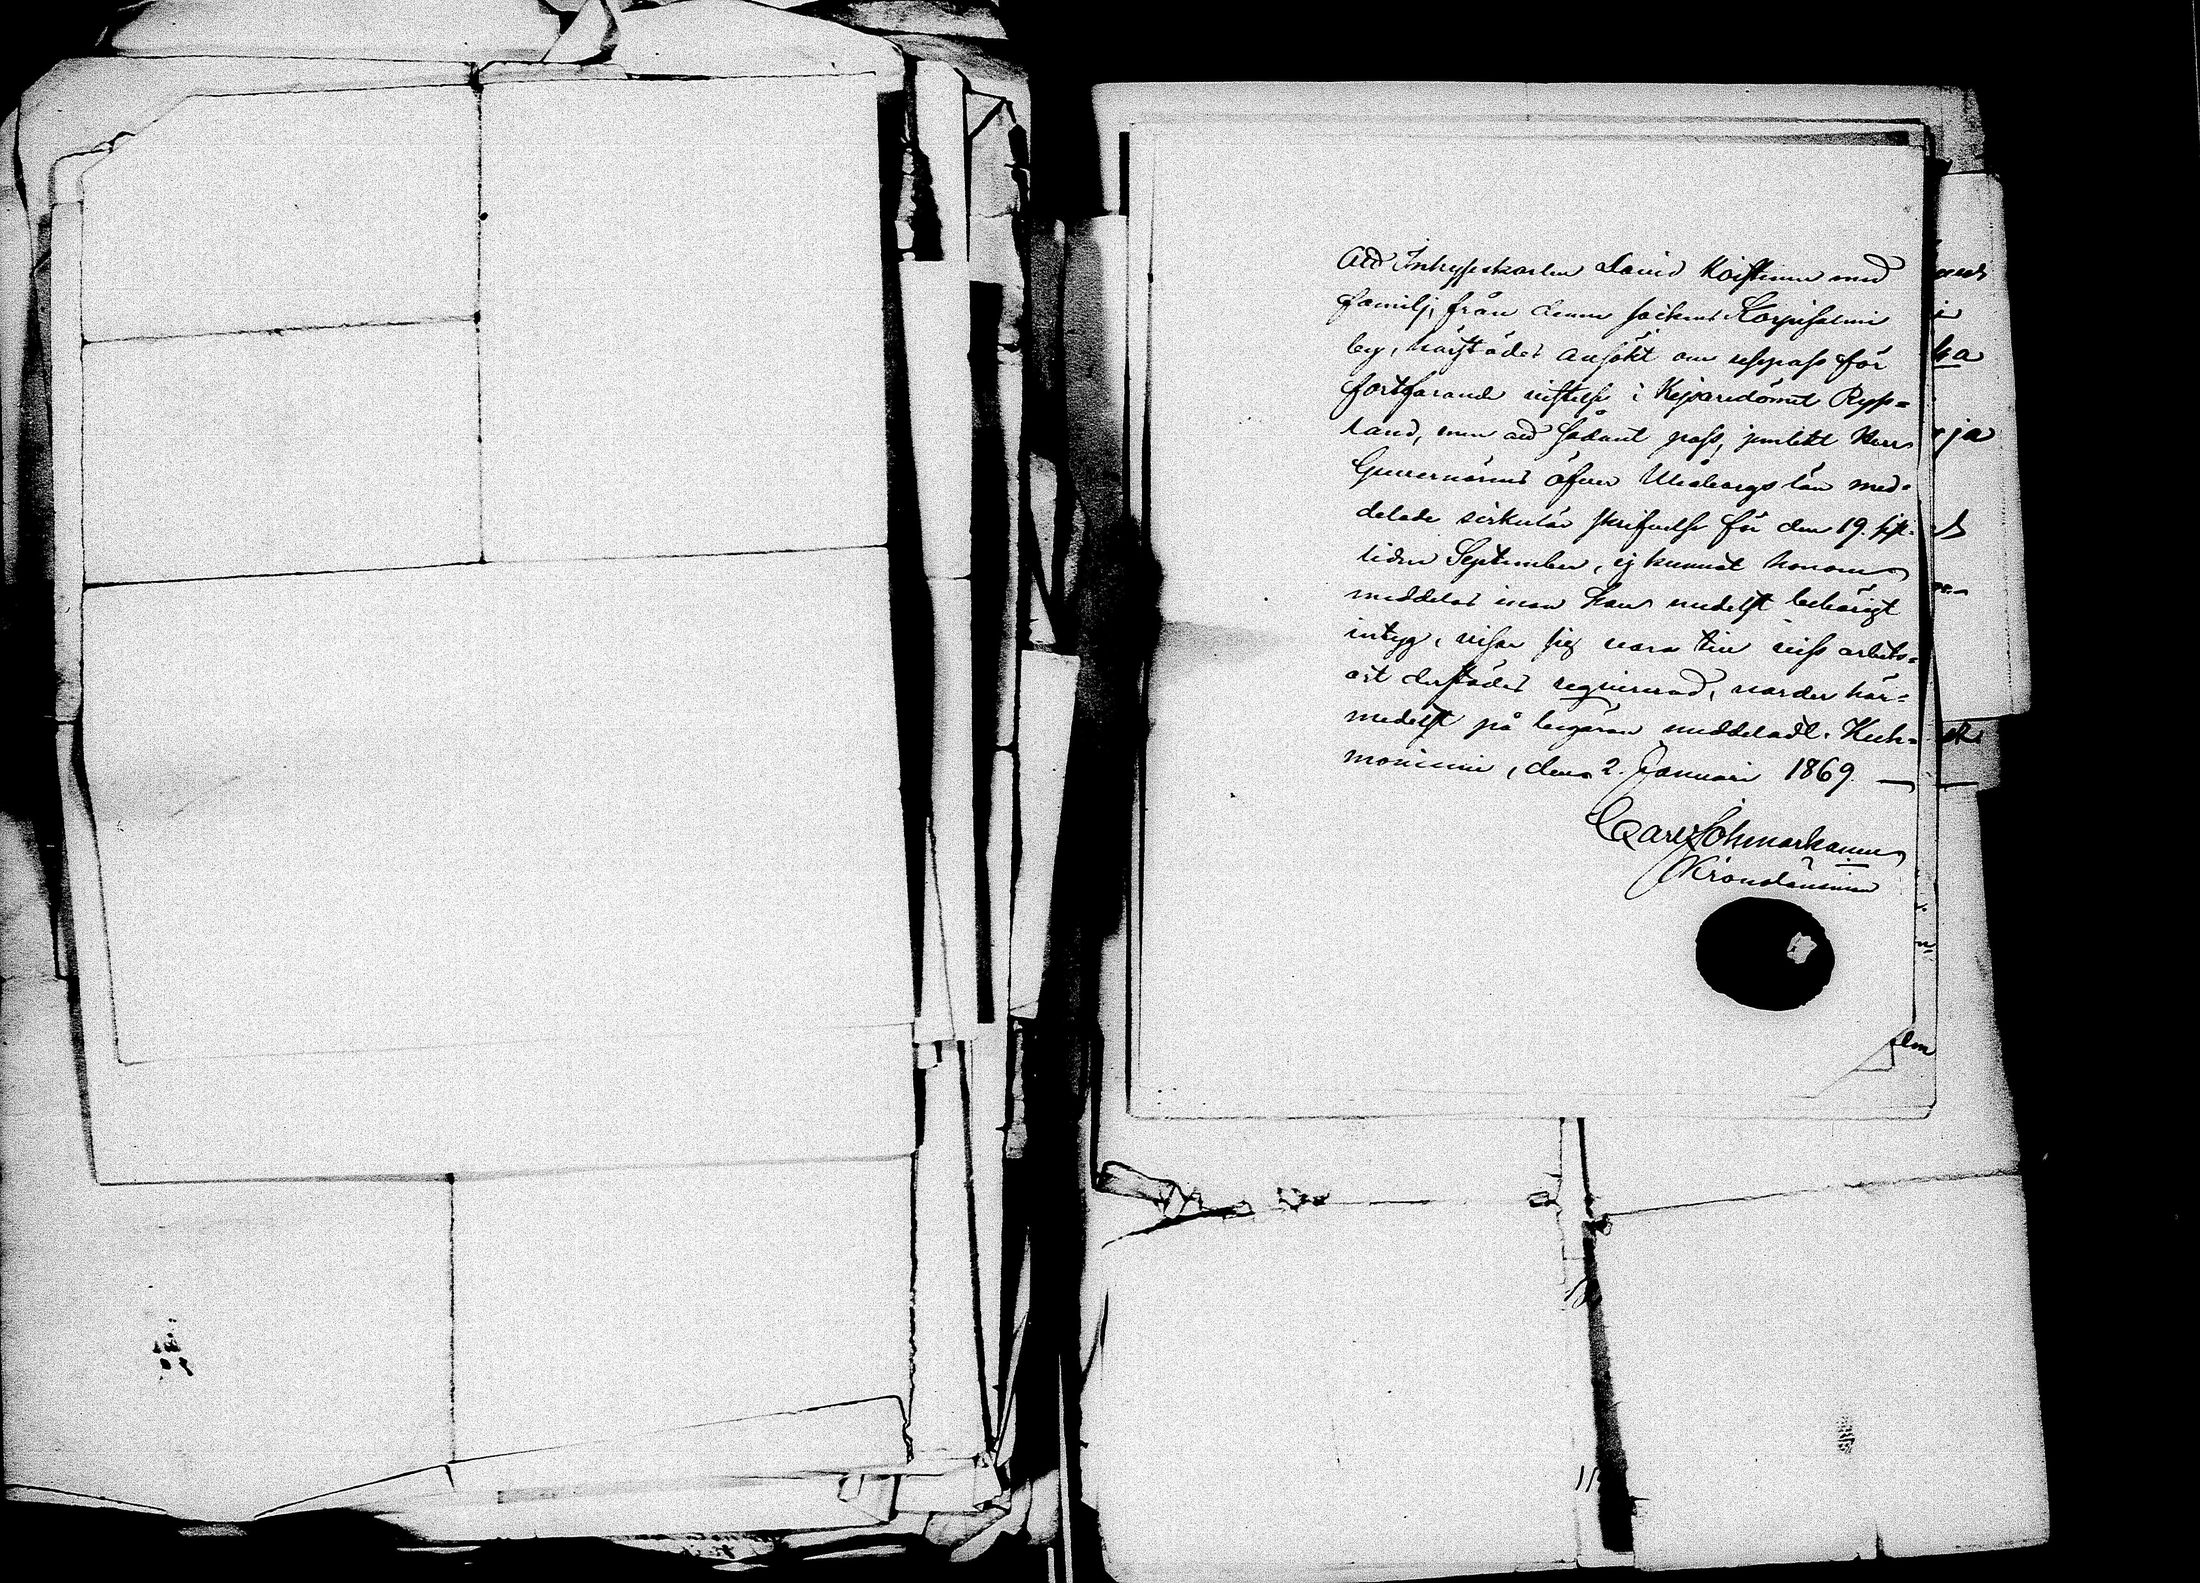 Att Inhysekarlen David Koistinen med
familj, från denna sockens Korpisalmi
by, härstädes ansökt om respass för
fortfarande vistelse i Kejsaredömet Ryss=
land, men att sådant pass, jemlikt Herr
Guvernörens öfver Uleåborgs län med=
delade sirkulär skrifvelse för den 19. sist-
liden September, ej kunnat honom
meddelas innan han medelst behörigt
intyg, visar sig vara till viss arbets=
ort derstädes requirerad, varder här=
medelst på begäran meddeladt. Kuh=
moniemi, den 2. Januari 1869. —
Carl
Kronolänsman
ka
ja